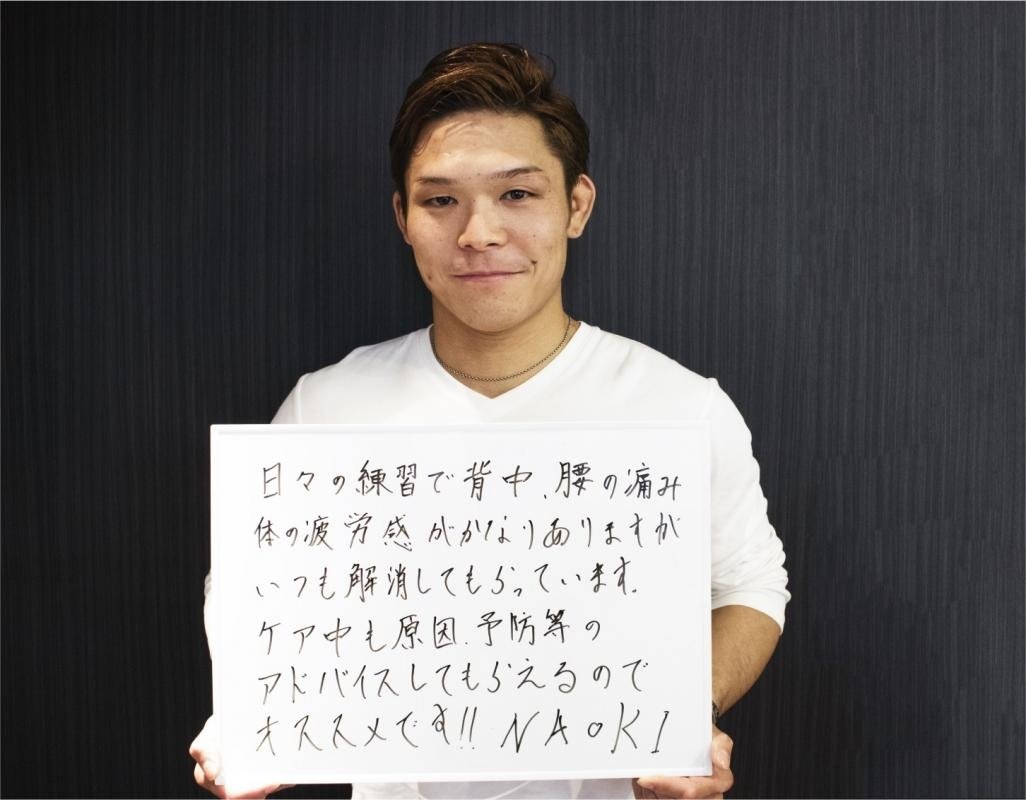 日々の練習で背中、腰の痛み
体の疲労感がかなりありますが
いつも解消してもらっています。
ケア中も原因、予防等の
アドバイスしてもらえるので
オススメです!! NAOKI